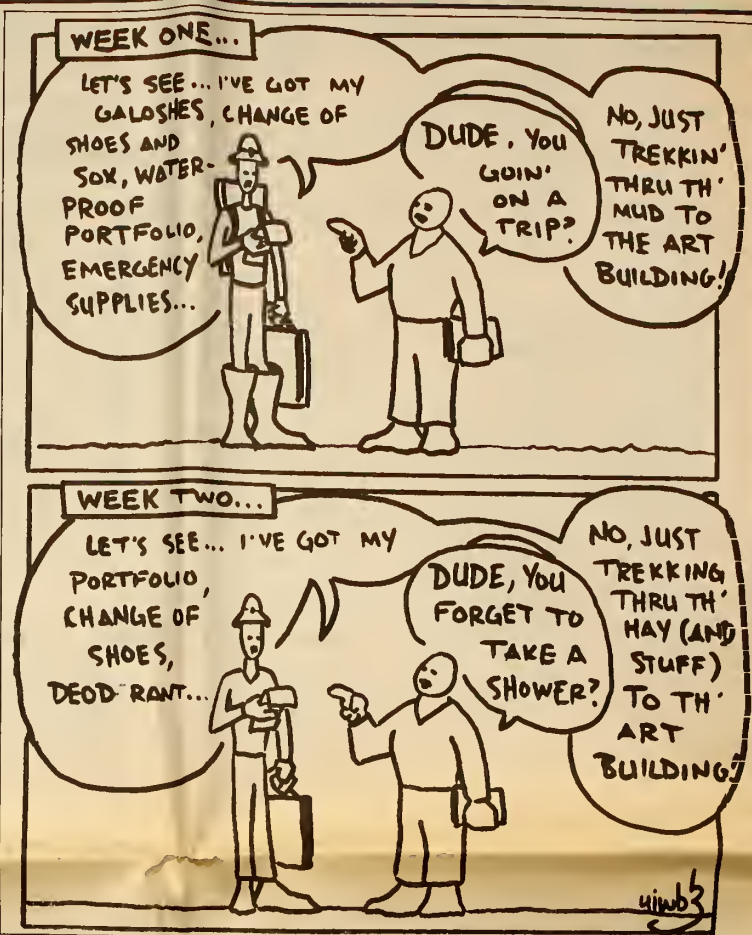 WEEK ONE...
LET'S SEE... I'VE GOT MY
GALOSHES, CHANGE OF
SHOES AND
SOX, WATER-
PROOF
PORTFOLIO,
EMERGENCY
SUPPLIES...
DUDE, YOU
GOIN'
ON A
TRIP?
NO, JUST
TREKKIN'
THRU TH'
MUD TO
THE ART
BUILDING!
WEEK TWO...
LET'S SEE... I'VE GOT MY
PORTFOLIO,
CHANGE OF
SHOES,
DEOD RANT...
DUDE, YOU
FORGET TO
TAKE A
SHOWER?
NO, JUST
TREKKING
THRU TH'
HAY (AND
STUFF)
TO TH'
ART
BUILDING!